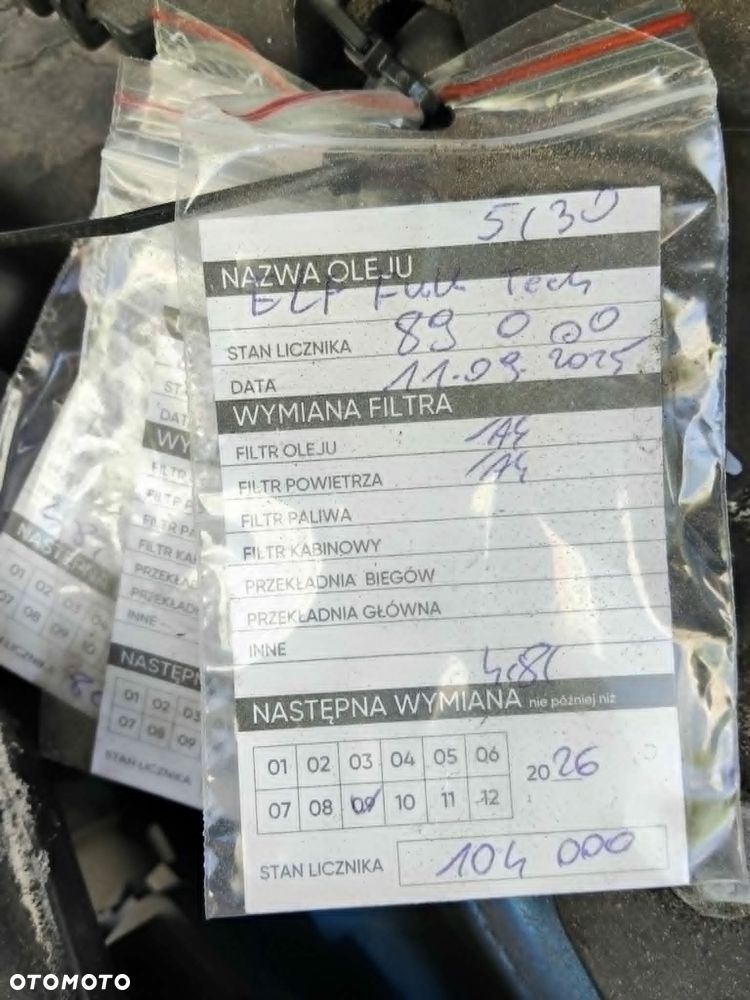 5/30
NAZWA OLEJU
ELF Full Tech
STAN LICZNIKA 89 000
DATA 11.09.2025
WYMIANA FILTRA
FILTR OLEJU
FILTR POWIETRZA
FILTR PALIWA
FILTR KABINOWY
PRZEKŁADNIA BIEGÓW
PRZEKŁADNIA GŁÓWNA
INNE
NASTĘPNA WYMIANA nie później niż
01 02 03 04 05 06
2026
07 08 09 10 11 12
STAN LICZNIKA 104 000
DAT
WY
FILTR KA
PRZEKŁA
PRZEKŁAD
INNE
NASTĘP
01 02 03
07 08 09
STAN LICZNIKA
NASTĘPN
01 02 03
07 08 09 10
OTOMOTO